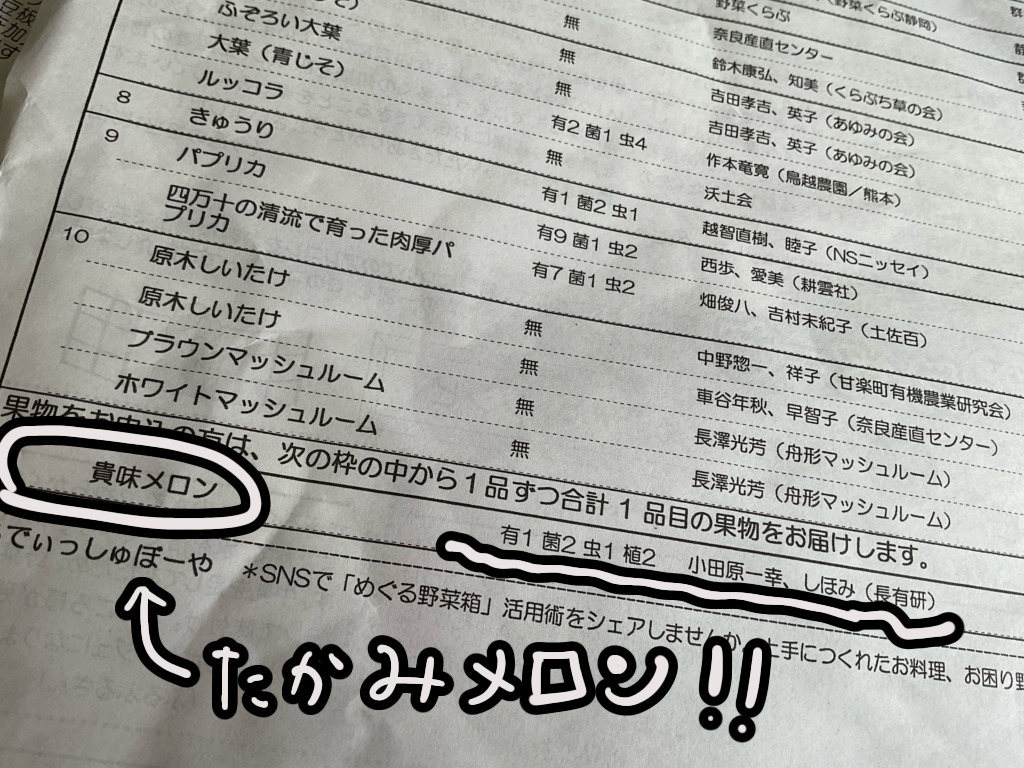 野菜くらぶ
（野菜くらぶ静岡）
ふぞろい大葉 無 奈良産直センター
大葉（青じそ） 無 鈴木康弘、知美（くらぶち草の会）
ルッコラ 無 吉田孝吉、英子（あゆみの会）
8
有2 菌1 虫4 吉田孝吉、英子（あゆみの会）
きゅうり 無 作本竜寛（鳥越農園／熊本）
9
パプリカ 有1 菌2 虫1 沃土会
四万十の清流で育った肉厚パプリカ 有9 菌1 虫2 越智直樹、睦子（NSニッセイ）
有7 菌1 虫2 西歩、愛美（耕雲社）
畑俊八、吉村未紀子（土佐百）
10
原木しいたけ 無 中野惣一、祥子（甘楽町有機農業研究会）
原木しいたけ 無 車谷年秋、早智子（奈良産直センター）
ブラウンマッシュルーム 無 長澤光芳（舟形マッシュルーム）
ホワイトマッシュルーム 無 長澤光芳（舟形マッシュルーム）
果物をお申込の方は、次の枠の中から１品ずつ合計 1 品目の果物をお届けします。
貴味メロン 有1 菌2 虫1 植2 小田原一幸、しほみ（長有研）
でぃっしゅぼーや ＊SNSで「めぐる野菜箱」活用術をシェアしませんか 上手につくれたお料理、お困り野
たかみメロン!!